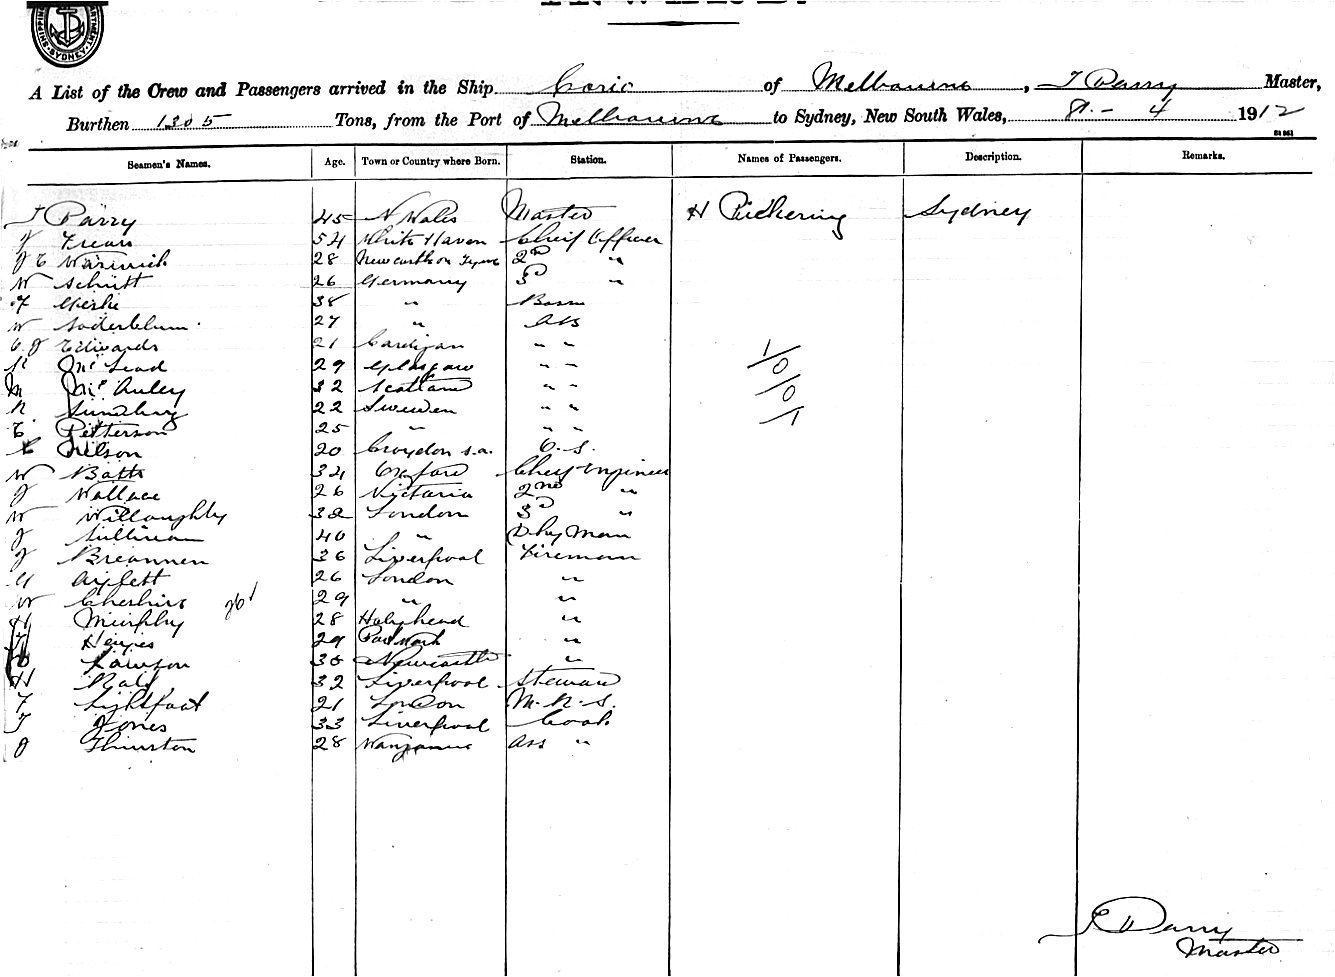 SYDNEY
INWARD.
A List of the Crew and Passengers arrived in the Ship Coric of Melbourne, T Parry Master,
Burthen 1305 Tons, from the Port of Melbourne to Sydney, New South Wales, 8.- 4 1912
Seamen's Names. Age. Town or Country where Born. Station. Names of Passengers. Description. Remarks.
T Parry 45 N Wales Master H Pickering Sydney
J 54 White Haven Cheif Officer
J E Warwick 28 Newcastle on Tyne 2nd "
W Schutt 26 Germany 3D "
38 " Bosun
W Soderblum. 27 " ABS
C J Edwards 21 Cardigan " "
Mc Leod 29 Glasgow " "
M McAuley 32 Scotland " "
N Sundberg 22 Sweden " "
E. Petterson 25 " " "
Nilson 20 Croydon s.a. O.S.
W Batts 34 Oxford Cheif Engineer
J Wallace 26 Victoria 2nd "
W Willoughby 32 London 3D "
J Sullivan 40 " Dky Man
J Breannen 36 Liverpool Fireman
26 London "
W Cheshire 261 29 " "
H Murphy 28 Holyhead "
29 "
Lawson 30 Newcastle "
H 32 Liverpool Steward
F Lightfoot 21 London M.R.S.
T Jones 33 Liverpool Cook
J Thurston 28 Ass "
1/0/0/1
T Parry
Master